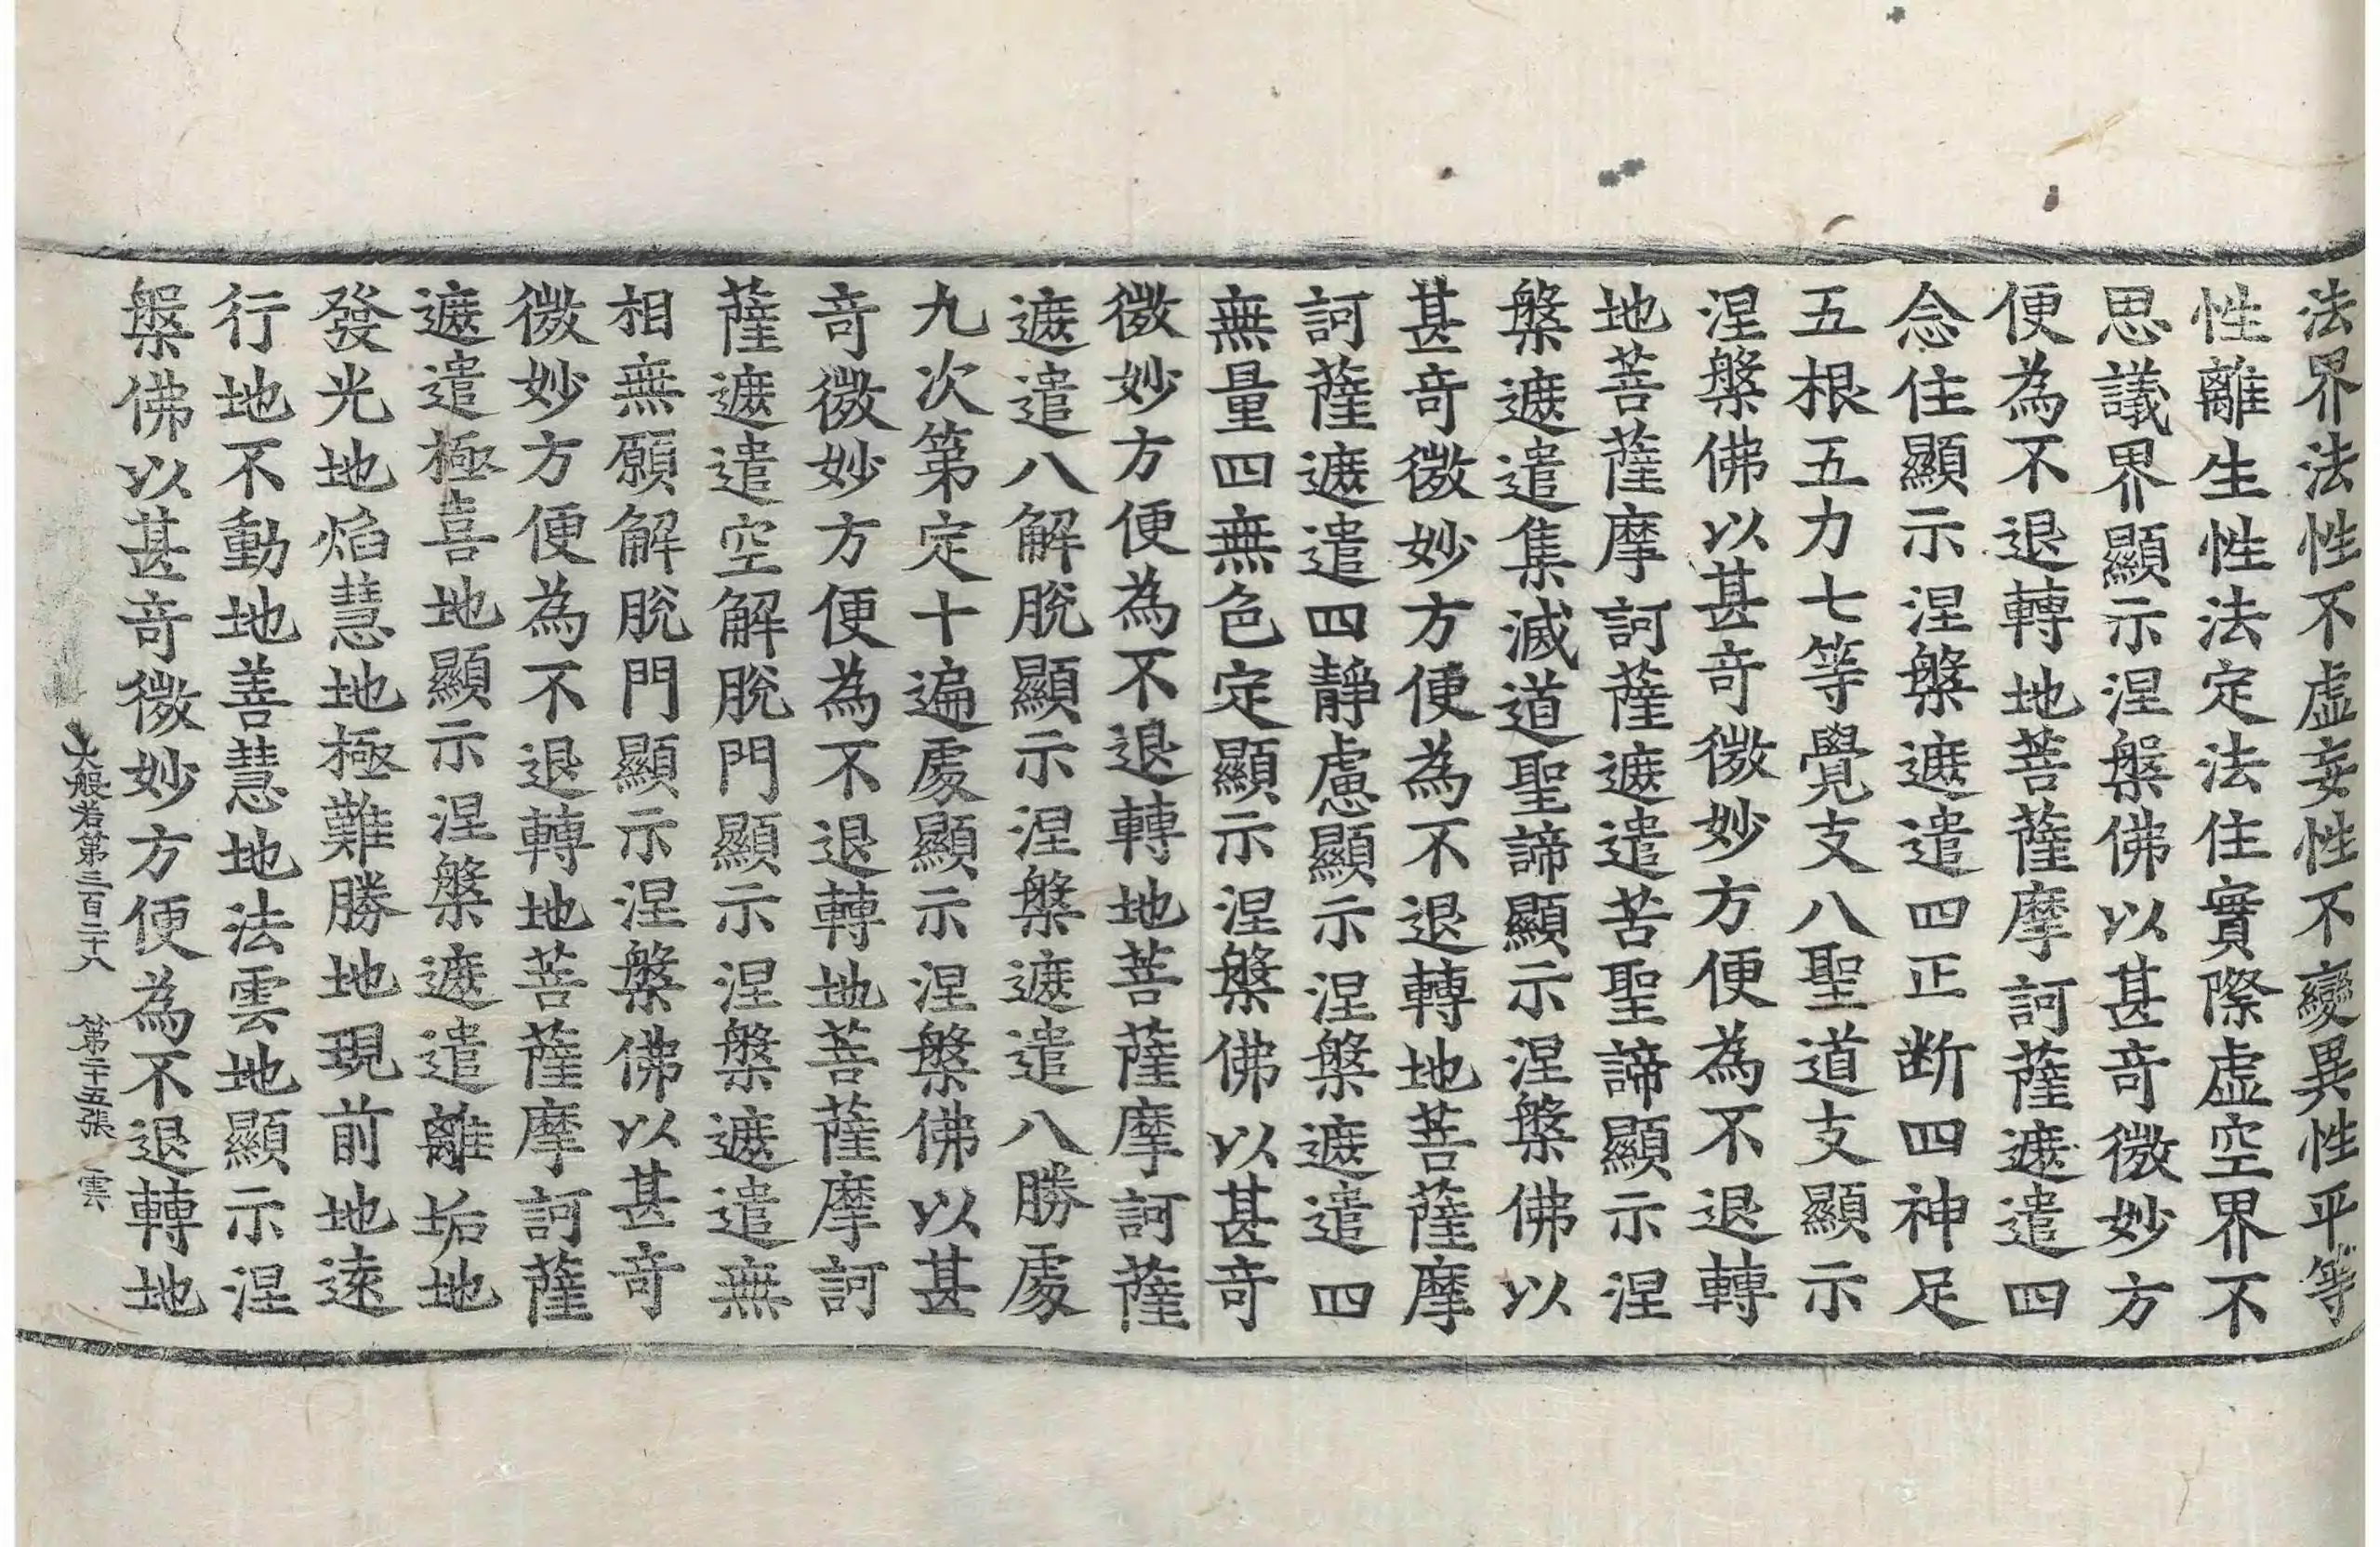 法界法性不虛妄性不變異性平等
性離生性法定法住實際虛空界不
思議界顯示涅槃佛以甚奇微妙方
便為不退轉地菩薩摩訶薩遮遣四
念住顯示涅槃遮遣四正斷四神足
五根五力七等覺支八聖道支顯示
涅槃佛以甚奇微妙方便為不退轉
地菩薩摩訶薩遮遣苦聖諦顯示涅
槃遮遣集滅道聖諦顯示涅槃佛以
甚奇微妙方便為不退轉地菩薩摩
訶薩遮遣四靜慮顯示涅槃遮遣四
無量四無色定顯示涅槃佛以甚奇
微妙方便為不退轉地菩薩摩訶薩
遮遣八解脫顯示涅槃遮遣八勝處
九次第定十遍處顯示涅槃佛以甚
奇微妙方便為不退轉地菩薩摩訶
薩遮遣空解脫門顯示涅槃遮遣無
相無願解脫門顯示涅槃佛以甚奇
微妙方便為不退轉地菩薩摩訶薩
遮遣極喜地顯示涅槃遮遣離垢地
發光地焰慧地極難勝地現前地遠
行地不動地善慧地法雲地顯示涅
槃佛以甚奇微妙方便為不退轉地
大般若第三百二十八 第二十五張 雲